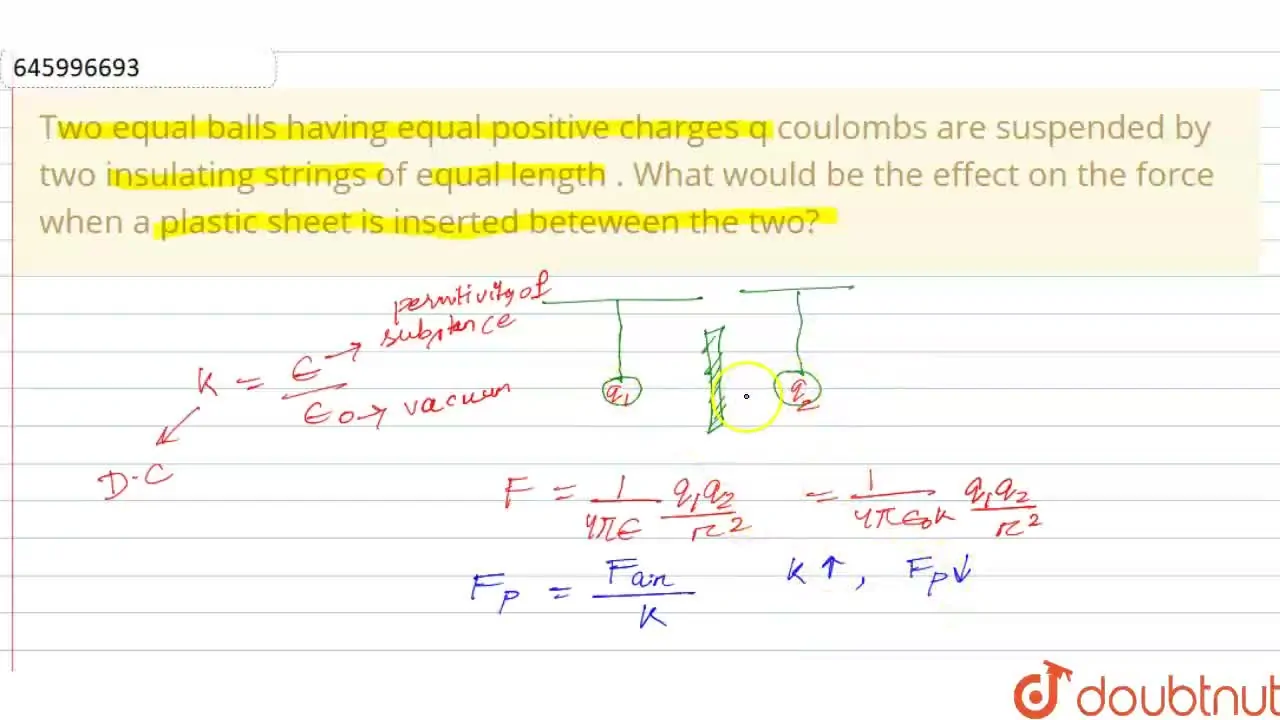 645996693
Two equal balls having equal positive charges q coulombs are suspended by
two insulating strings of equal length . What would be the effect on the force
when a plastic sheet is inserted beteween the two?
permitivity of
substance
K = ϵ/ϵ0 → vacuum
D.C
q1 q2
F = 1/4πϵ q1q2/r² = 1/4πϵ0k q1q2/r²
Fp = Fair/K K↑, Fp↓
doubtnut